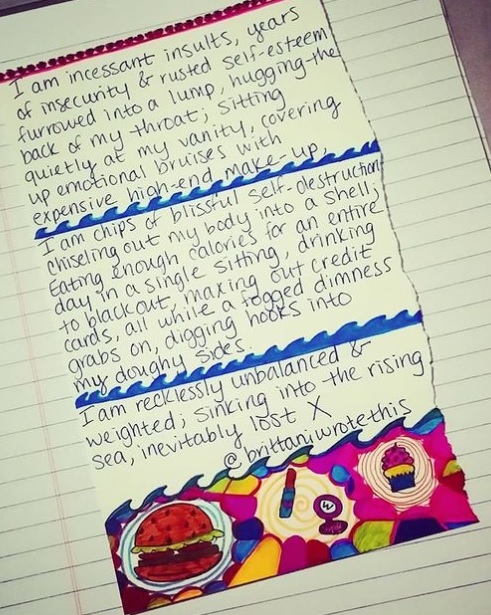 I am incessant insults, years
of insecurity & rusted self-esteem
furrowed into a lump, hugging the
back of my throat; sitting
quietly at my vanity, covering
up emotional bruises with
expensive high-end make-up,
I am chips of blissful self-destruction
chiseling out my body into a shell;
Eating enough calories for an entire
day in a single sitting, drinking
to blackout, maxing out credit
cards, all while a fogged dimness
grabs on, digging hooks into
my doughy sides.
I am recklessly unbalanced &
weighted; sinking into the rising
sea, inevitably lost X
@brittanjwrotethis